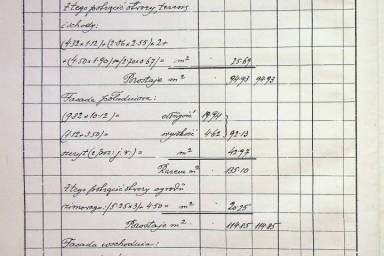 Z tego potrącić otwory, terens
i schody:
(4.32+1.12)+(2.86×2.55)×2+
+(4.50×1.90)+(2.70×0.67)= m² 25.69
Pozostaje m² 94.93 94.93
Fasada południowa:
(9.82+10.12)= długość 19.94
(1.12+3.50)= wysokość 4.62 92.13
m² 42.97
Razem m² 135.10
Z tego potrącić otwory ogrodu
zimowego: (5.25×3)+4.50= m² 20.25
Pozostaje m² 114.85 114.85
Fasada wschodnia: